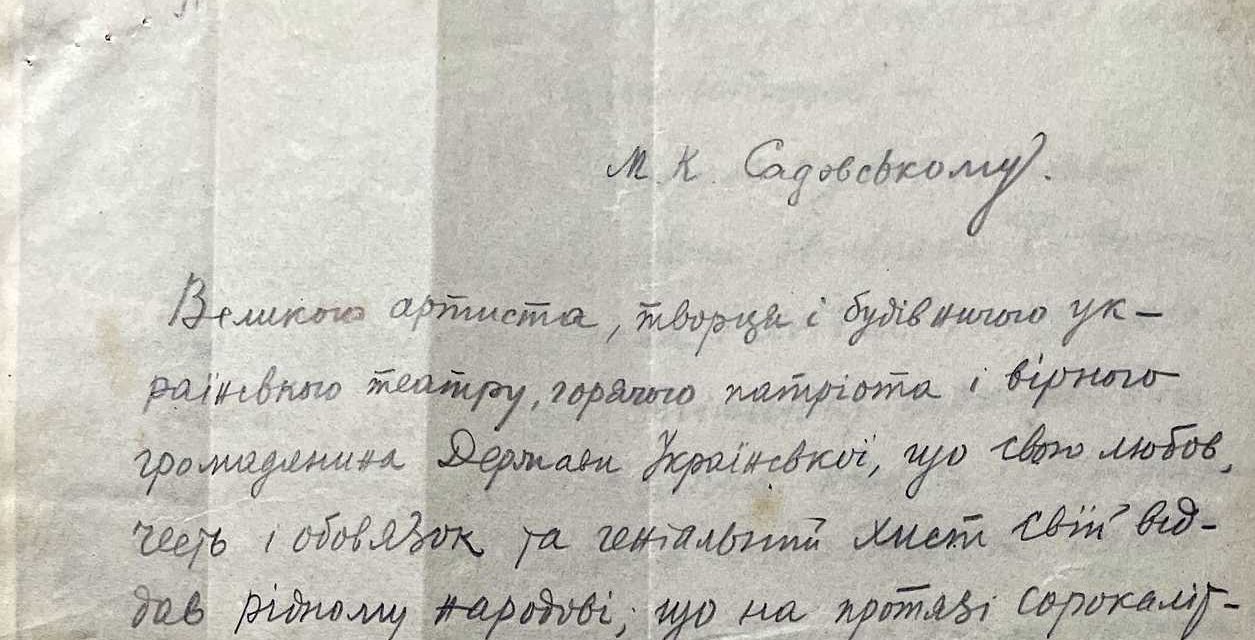 М. К. Садовському.
Великого артиста, творця і будівничого ук-
раїнського театру, горячого патріота і вірного
громадянина Держави Української, що свою любов,
честь і обовязок та геніальний хист свій від-
дав рідному народові; що на протязі сорокаліт-